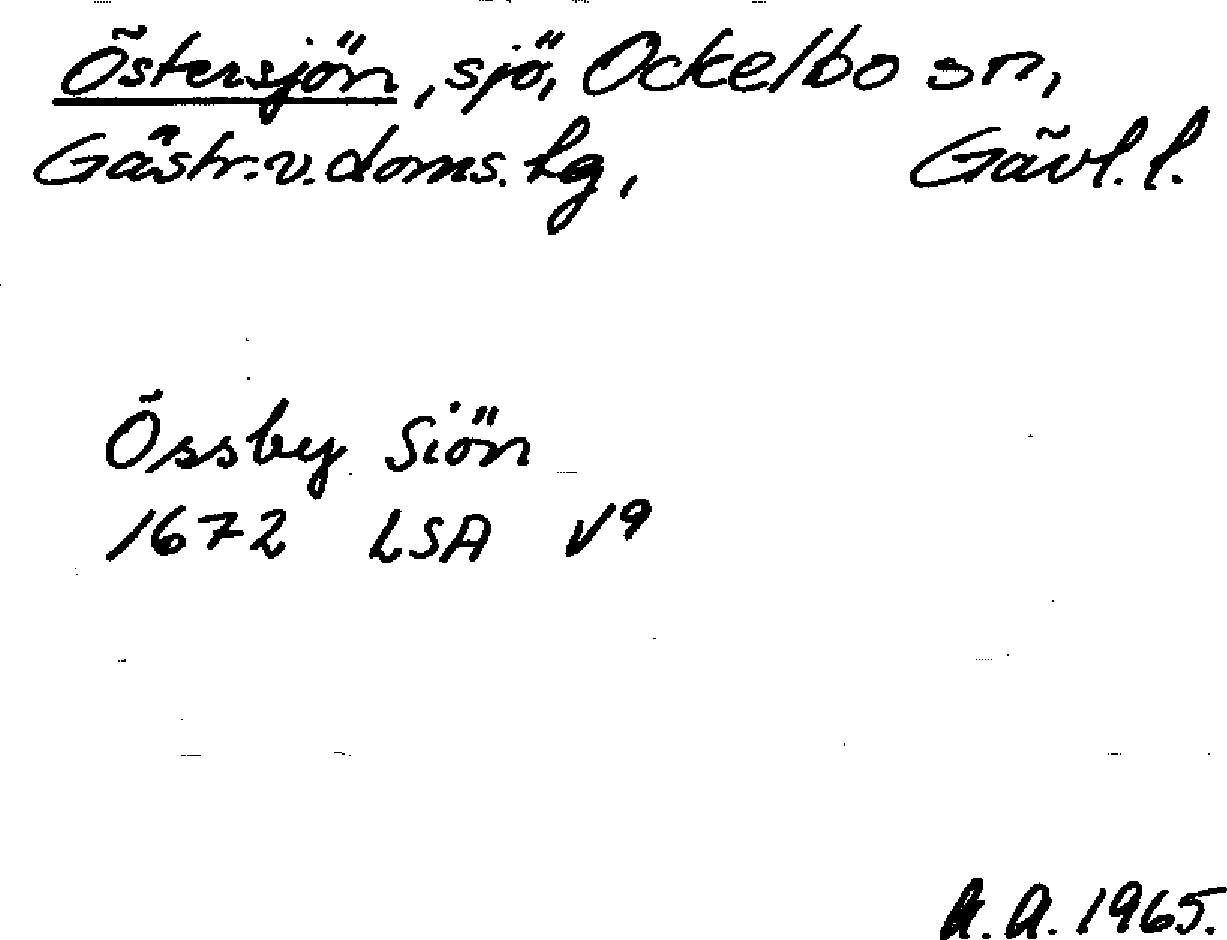 Östersjön, sjö, Ockelbo sn,
Gästr.v.doms.hg, Gävl.l.
Össby Siön
1672 LSA V9
A.A. 1965.